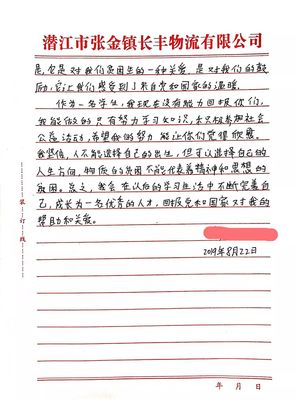 潜江市张金镇长丰物流有限公司
是,它是对我们贫困生的一种关爱,是对我们的鼓
励,它让我们感受到了来自党和国家的温暖。
作为一名学生,我现在没有能力回报你们,
我能做的只有努力学习知识,去积极参加社会
公益活动,希望我的努力能让你们觉得欣慰。
我坚信,人不能选择自己的出生,但可以选择自己的
人生方向,物质的贫困不能代表着精神和思想的
贫困。总之,我会在以后的学习生活中不断完善自
己,成长为一名优秀的人才,回报党和国家对我的
帮助和关爱。
2019年8月22日
装订线
年 月 日